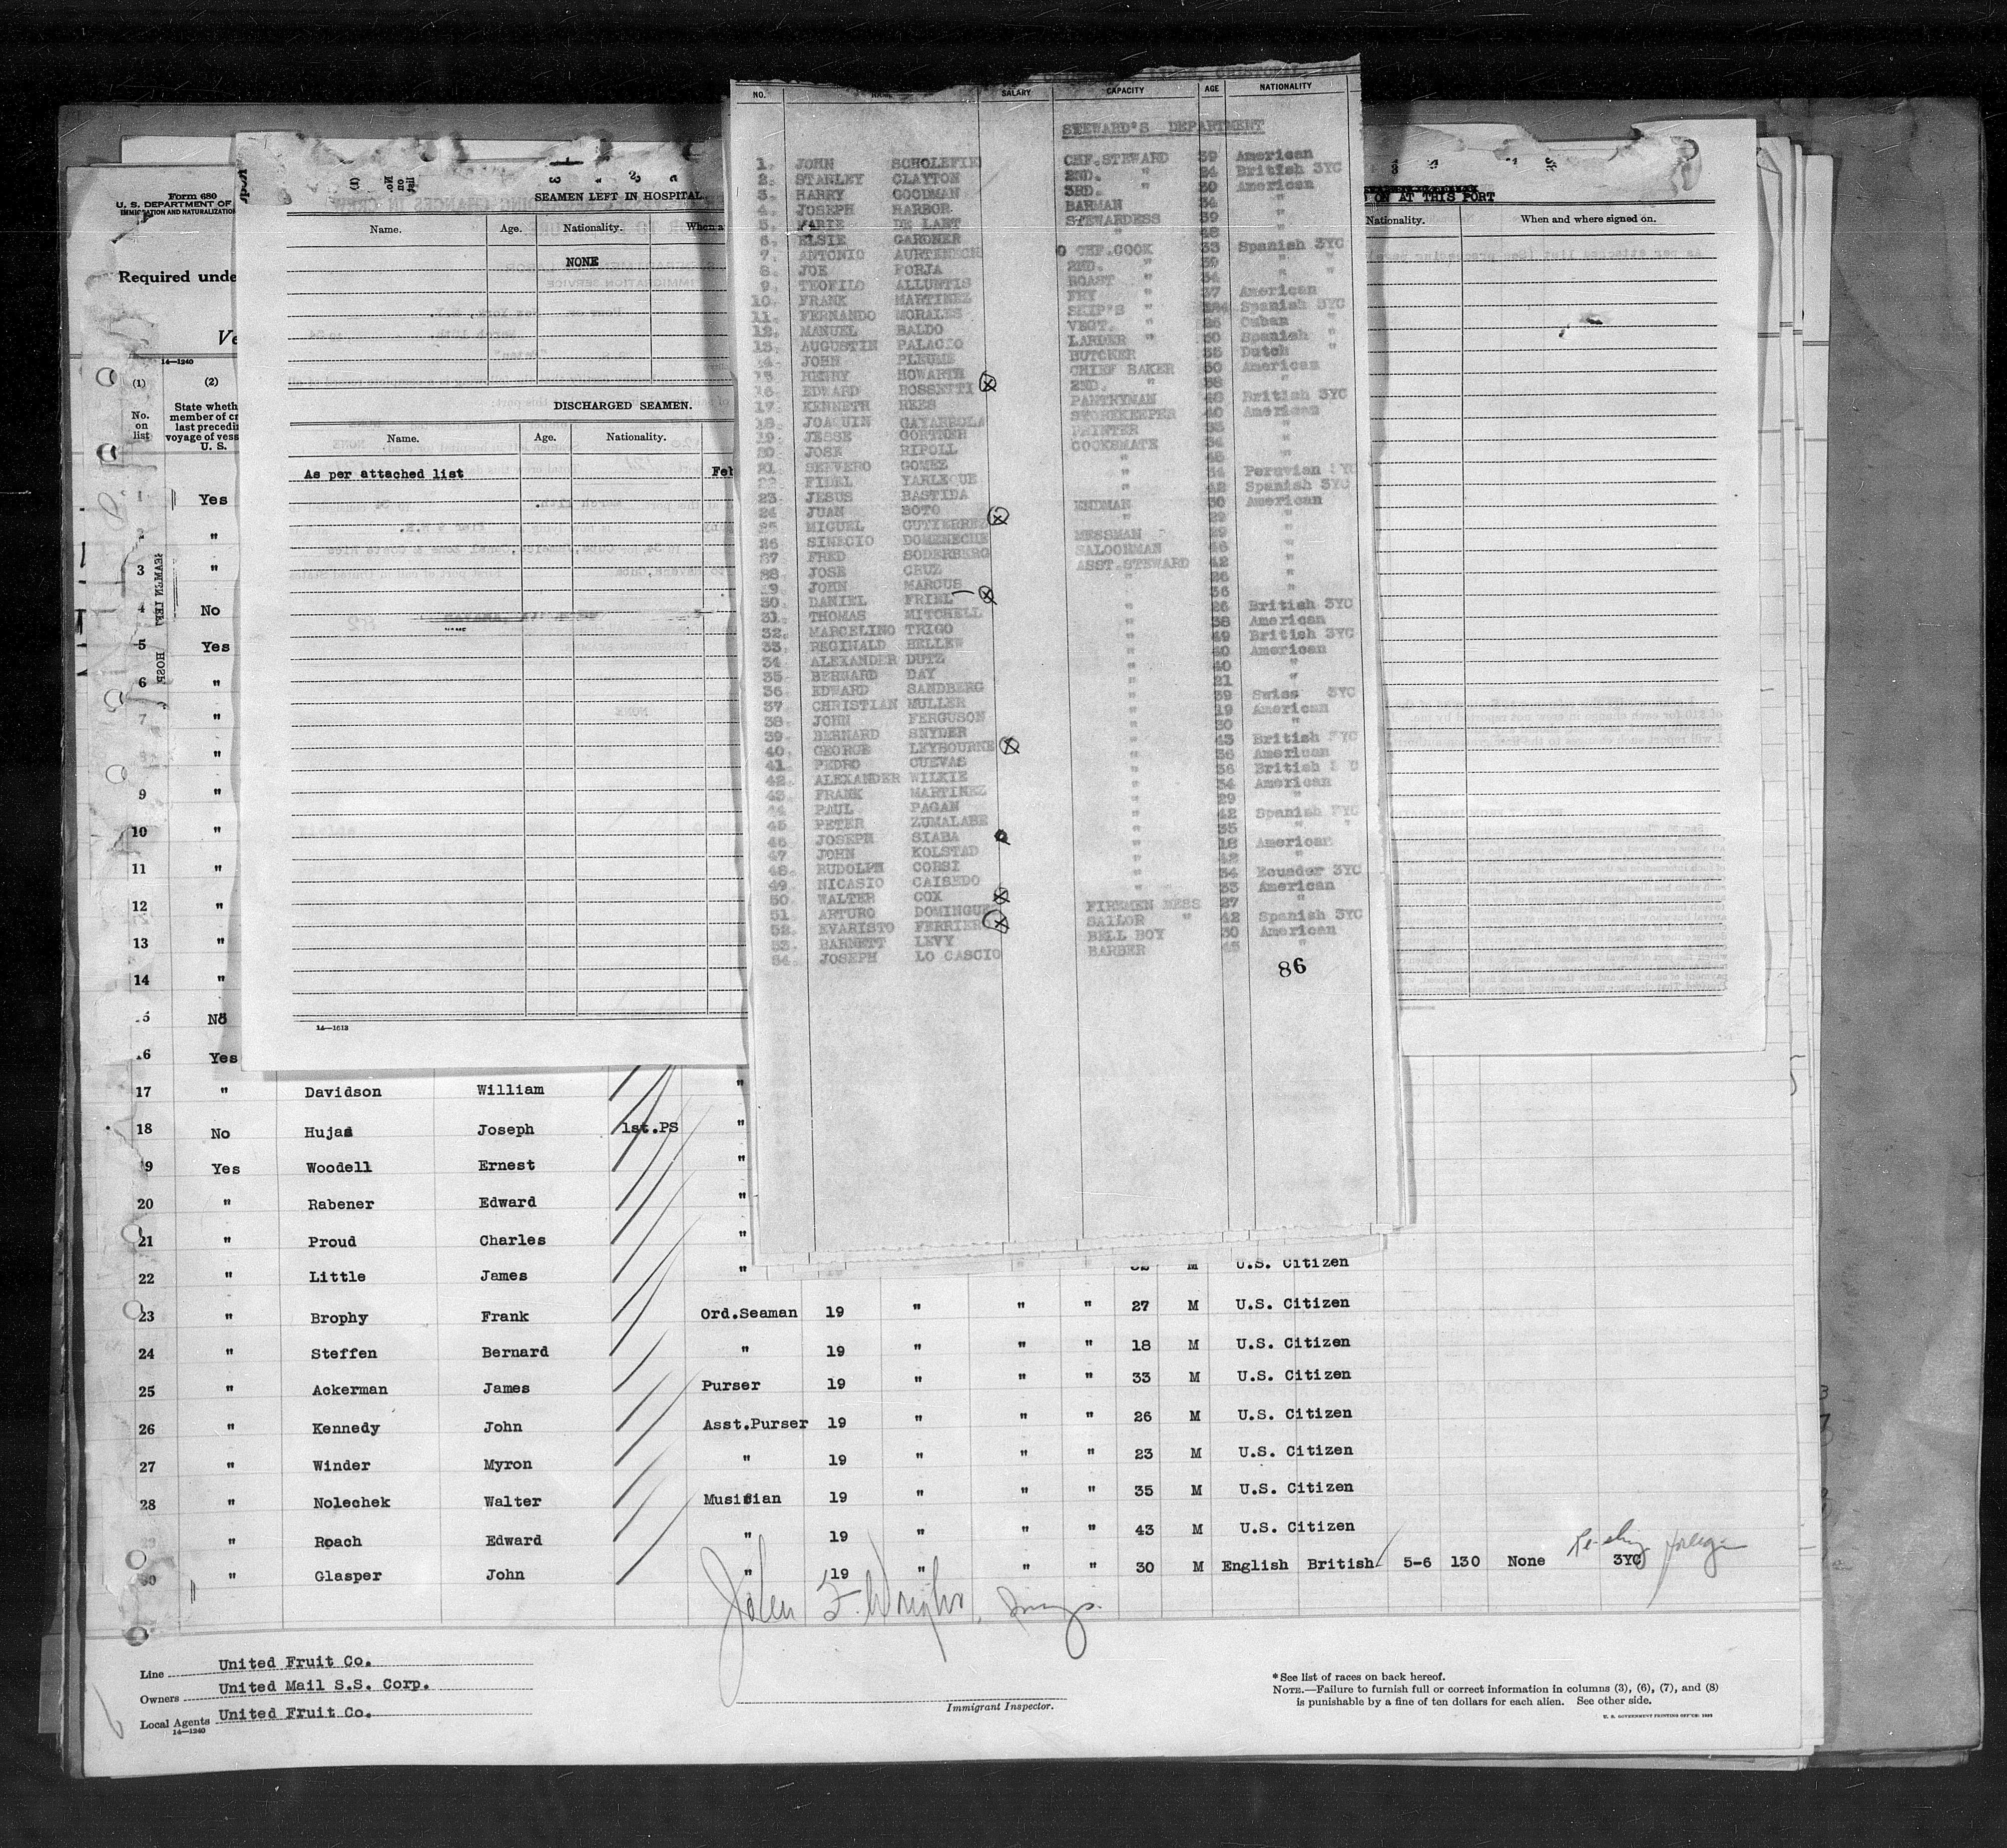 NO. SALARY CAPACITY AGE NATIONALITY
STEWARD'S DEPARTMENT
1. JOHN SCHOLEFIE CHF.STEWARD 39 American
2. STANLEY CLAYTON 2ND. " 24 British 3YC
3. HARRY GOODMAN 3RD. " 30 American
4. JOSEPH HARBOR BARMAN 34 "
5. MARIE DE LAET STEWARDESS 39 "
6. ELSIE GARDNER " 48 "
7. ANTONIO AURTENECH O CHF.COOK 33 Spanish 3YC
8. JOE PORJA 2ND. " 39 " "
9. TEOFILO ALLURTIS ROAST " 34 " "
10. FRANK MARTINEZ FRY " 37 American
11. FERNANDO MORALES SHIP'S " Spanish 3YC
12. MANUEL BALDO VEGT. " 26 Cuban "
13. AUGUSTIN PALACIO LARDER " 30 Spanish "
14. JOHN PLEUME BUTCHER 35 Dutch "
15 HENRY HOWARTH CHIEF BAKER 50 American
16. EDWARD ROSSETTI 2ND. " 38 "
17. KENNETH REES PANTRYMAN 48 British 3YC
18. JOAQUIN GAYARROLA STOREKEEPER 40 American
19. JESSE GORTNER PRINTER 35 "
20. JOSE RIPOLL COOKSMATE 34 "
21 SERVERO GOMEZ " 48 "
22. FIDEL YARLEQUE " 34 Peruvian 3YC
23. JESUS BASTIDA " 42 Spanish 3YC
24 JUAN SOTO ENDMAN 30 American
25. MIGUEL GUTYIERREZ " 29 "
26 SINECIO DOMENECHE MESSMAN 29 "
27 FRED SODERBERG SALOONMAN 46 "
28. JOSE CRUZ ASST.STEWARD 42 "
29. JOHN MARCUS " 26 "
30. DANIEL FRIEL " 36 "
31. THOMAS MITCHELL " 26 British 3YC
32. MARCELINO TRIGO " 38 American
33. REGINALD HELLEW " 49 British 3YC
34 ALEXANDER DUTZ " 40 American
35 BERNARD DAY " 40 "
36 EDWARD SANDBERG " 21 "
37 CHRISTIAN MULLER " 39 Swiss 3YC
38. JOHN FERGUSON " 19 American
39. BERNARD SNYDER " 30 "
40. GEORGE LEYBOURNE " 43 British 3YC
41. PEDRO CUEVAS " 36 American
42. ALEXANDER WILKIE " 36 British 3YC
43. FRANK MARTINEZ " 34 American
44 PAUL PAGAN " 29 "
45 PETER ZUMALABE " 42 Spanish 3YC
46 JOSEPH SIABA " 35 " "
47 JOHN KOLSTAD " 18 American
48. RUDOLPH CORSI " 42 "
49. NICASIO CAISEDO " 34 Ecuador 3YC
50. WALTER COX " 33 American
51. ARTURO DOMINGUE FIREMEN MESS 27 "
52. EVARISTO FERRIER SAILOR " 42 Spanish 3YC
53. BARNETT LEVY BELL BOY 30 American
54. JOSEPH LO CASCIO BARBER 45 "
86
Form 680
U. S. DEPARTMENT OF
IMMIGRATION AND NATURALIZATION
Required unde
Ve
14—1240
(1) (2)
No. on list
State wheth
member of cr
last precedin
voyage of vess
U. S.
SEAMEN LEFT IN HOSPITAL.
Name. Age. Nationality. When a
NONE
DISCHARGED SEAMEN.
Name. Age. Nationality.
As per attached list Feb
14—1613
D ON AT THIS PORT
Nationality. When and where signed on.
1 Yes
2 "
3 "
4 No
5 Yes
6 "
7 "
8 "
9 "
10 "
11 "
12 "
13 "
14 "
15 No
16 Yes
17 " Davidson William "
18 No Hujas Joseph 1st.PS "
19 Yes Woodell Ernest "
20 " Rabener Edward "
21 " Proud Charles "
22 " Little James " M U.S. Citizen
23 " Brophy Frank Ord.Seaman 19 " " " 27 M U.S. Citizen
24 " Steffen Bernard " 19 " " " 18 M U.S. Citizen
25 " Ackerman James Purser 19 " " " 33 M U.S. Citizen
26 " Kennedy John Asst.Purser 19 " " " 26 M U.S. Citizen
27 " Winder Myron " 19 " " " 23 M U.S. Citizen
28 " Nolechek Walter Musician 19 " " " 35 M U.S. Citizen
29 " Roach Edward " 19 " " " 43 M U.S. Citizen
30 " Glasper John " 19 " " " 30 M English British 5-6 130 None 3YC
John F. Wright, Insp.
Immigrant Inspector.
Line United Fruit Co.
Owners United Mail S.S. Corp.
Local Agents United Fruit Co.
14—1240
*See list of races on back hereof.
NOTE.—Failure to furnish full or correct information in columns (3), (6), (7), and (8)
is punishable by a fine of ten dollars for each alien. See other side.
U. S. GOVERNMENT PRINTING OFFICE: 1933